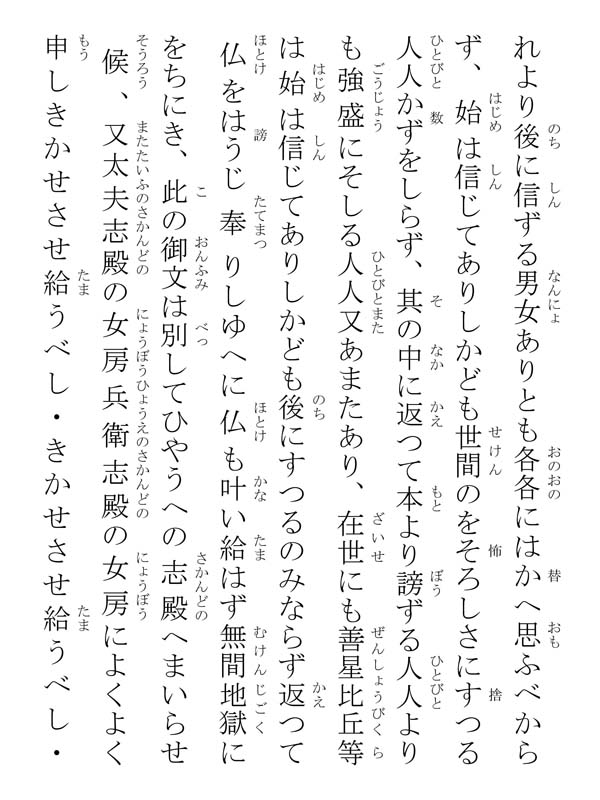 れより後に信ずる男女ありとも各各にはかへ思ふべから
ず、始は信じてありしかども世間のをそろしさにすつる
人人かずをしらず、其の中に返つて本より謗ずる人人より
も強盛にそしる人人又あまたあり、在世にも善星比丘等
は始は信じてありしかども後にすつるのみならず返つて
仏をはうじ奉りしゆへに仏も叶い給はず無間地獄に
をちにき、此の御文は別してひやうへの志殿へまいらせ
候、又太夫志殿の女房兵衛志殿の女房によくよく
申しきかせさせ給うべし・きかせさせ給うべし・